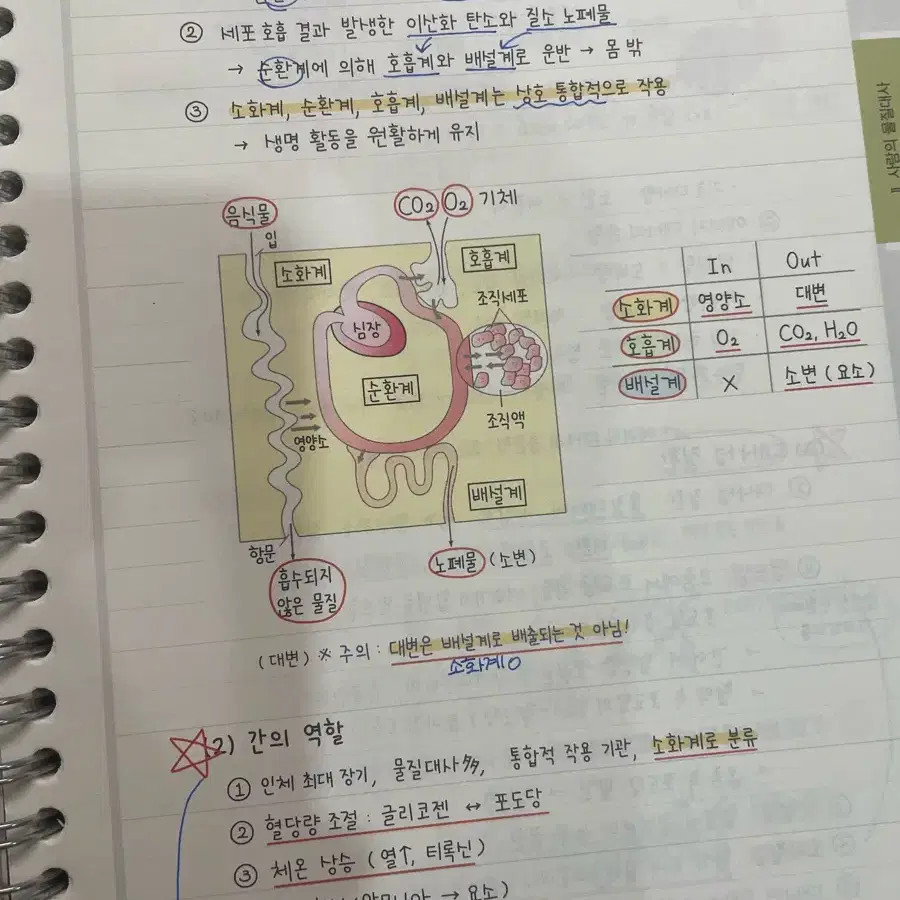 ② 세포 호흡 결과 발생한 이산화 탄소와 질소 노폐물
→ 순환계에 의해 호흡계와 배설계로 운반 → 몸 밖
③ 소화계, 순환계, 호흡계, 배설계는 상호 통합적으로 작용
→ 생명 활동을 원활하게 유지
II 사람의 물질대사
음식물
입
CO₂ O₂ 기체
소화계
호흡계
조직세포
심장
순환계
영양소
조직액
배설계
항문
흡수되지
않은 물질
노폐물 (소변)
In Out
소화계 영양소 대변
호흡계 O₂ CO₂, H₂O
배설계 X 소변 (요소)
(대변) ※ 주의 : 대변은 배설계로 배출되는 것 아님!
소화계O
2) 간의 역할
① 인체 최대 장기, 물질대사 多多, 통합적 작용 기관, 소화계로 분류
② 혈당량 조절 : 글리코젠 ↔ 포도당
③ 체온 상승 (열↑, 티록신)
→ 요소)